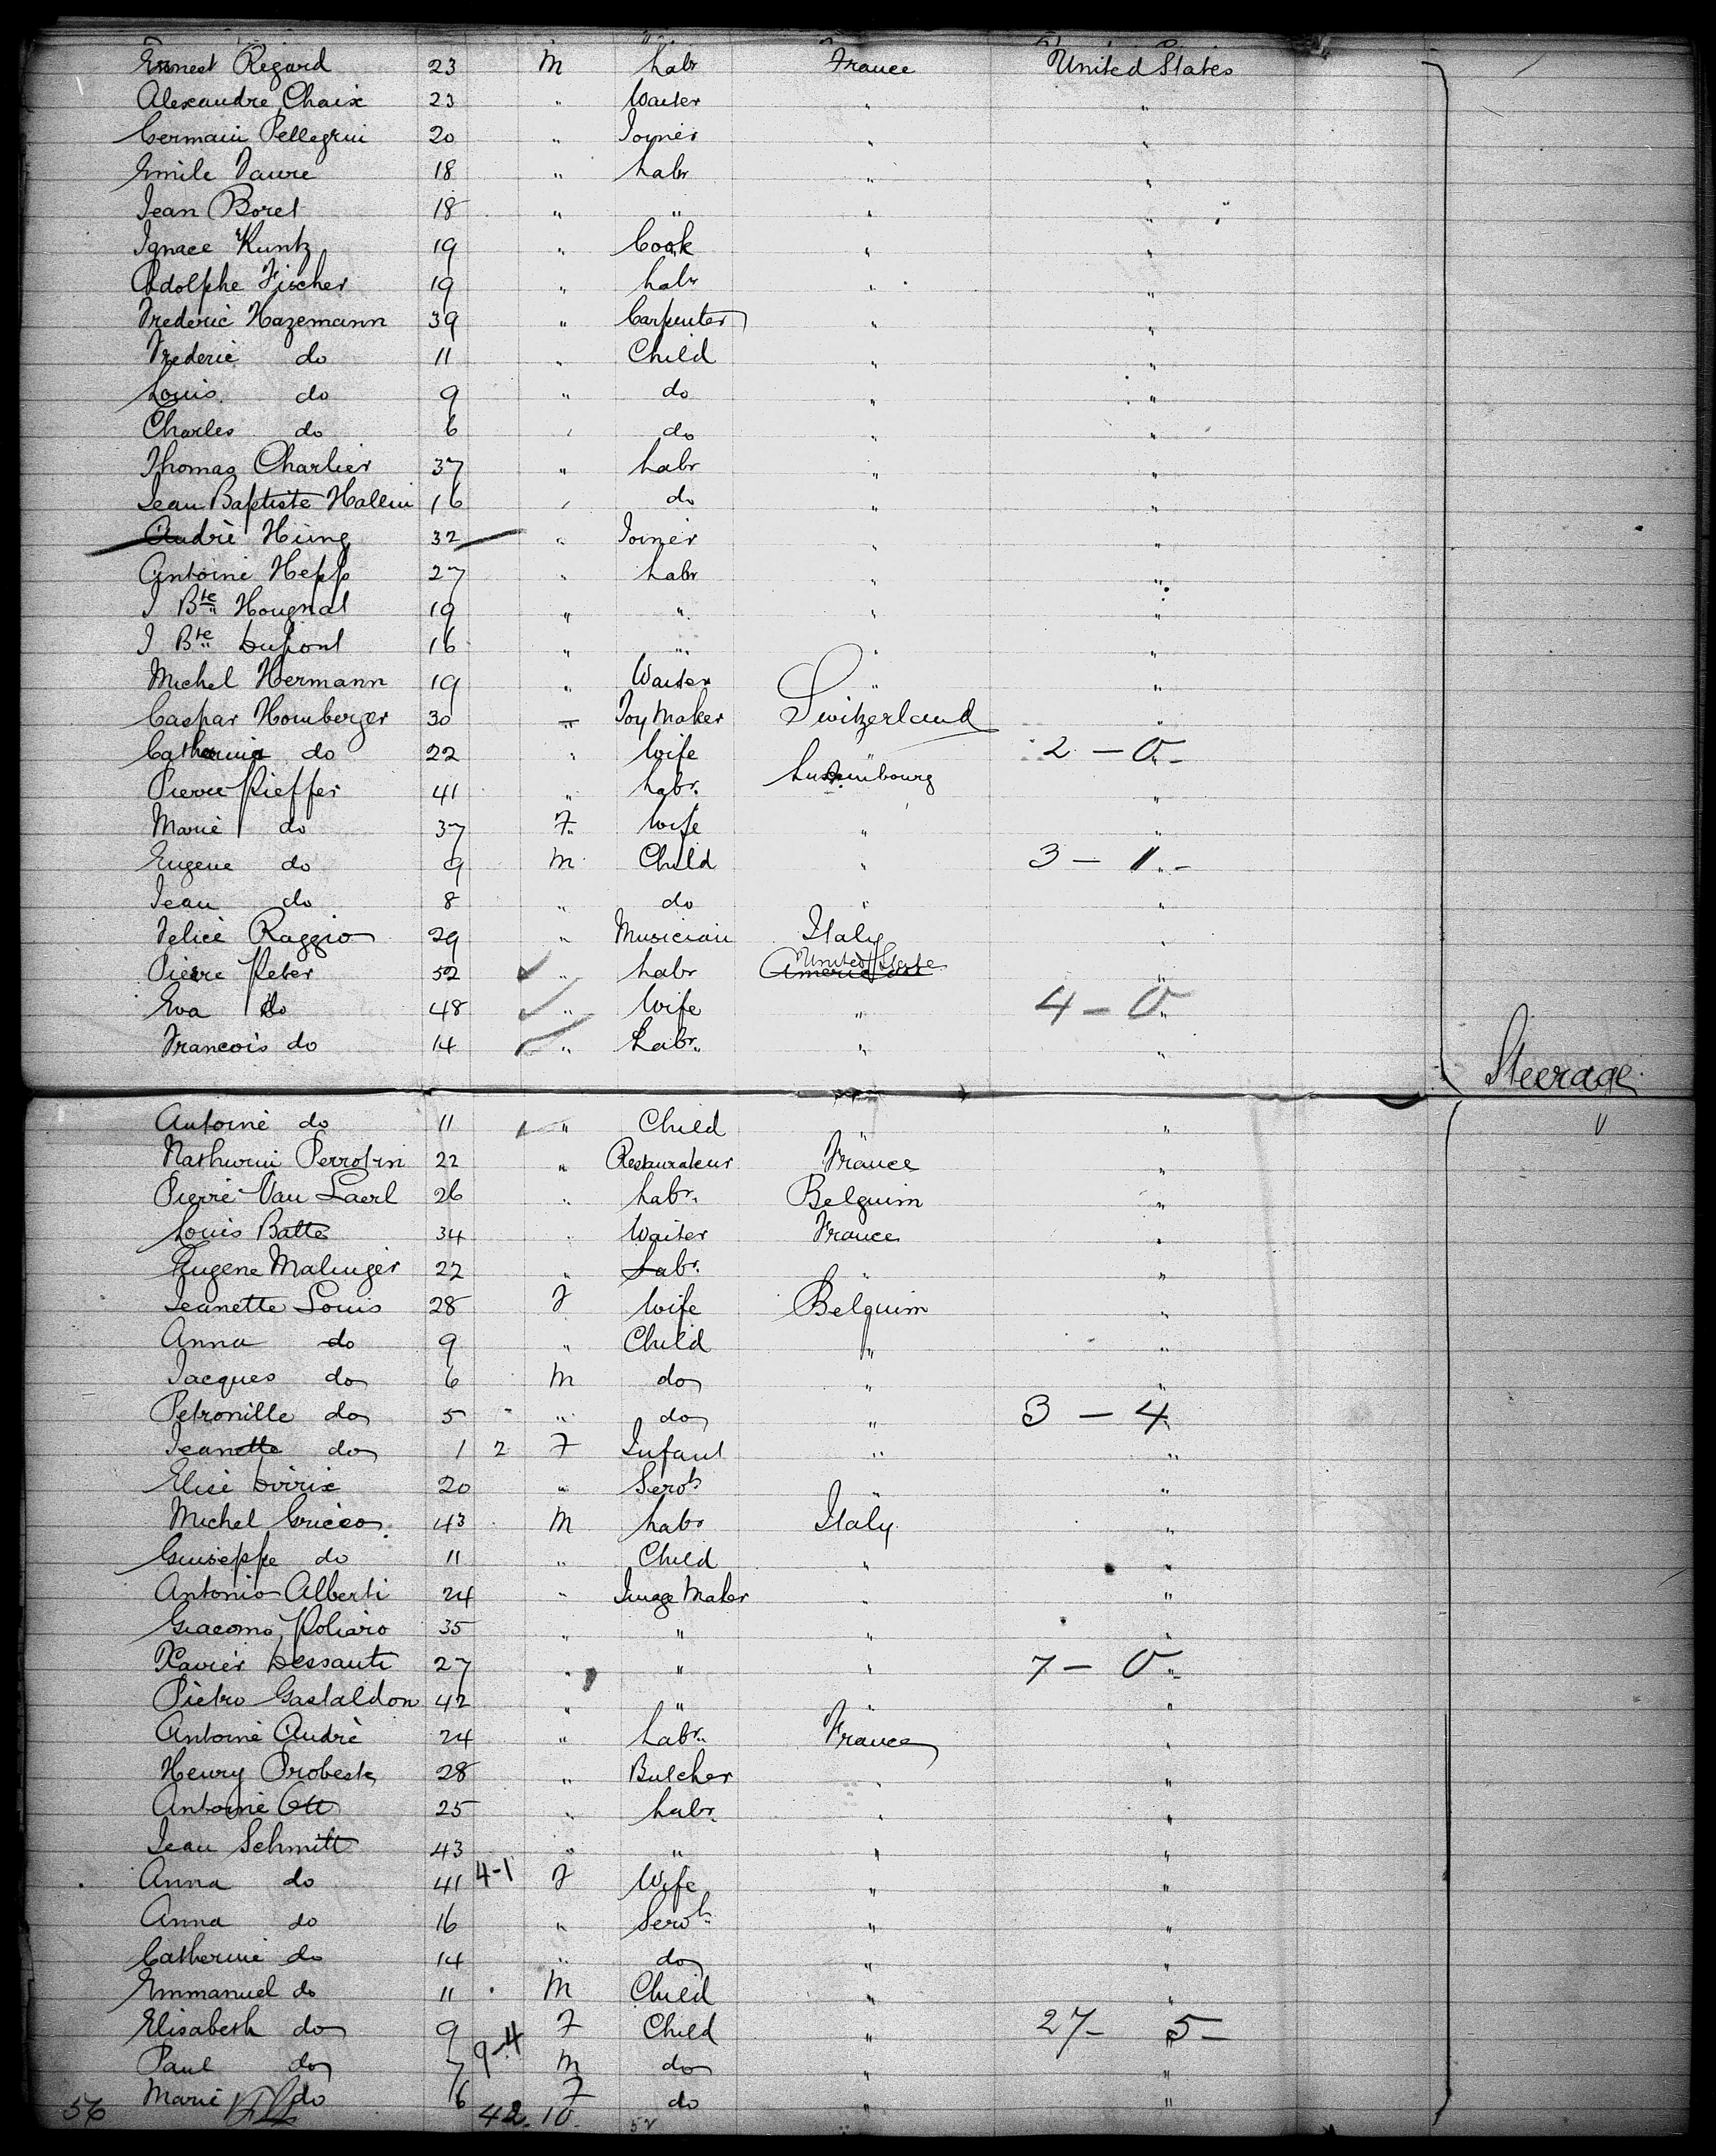 Ernest Regard 23 M Labr France United States
Alexandre Chaix 23 " Waiter " "
Germain Pellegrin 20 " Joiner " "
Emile Faure 18 " Labr " "
Jean Borel 18 " " " "
Ignace Kuntz 19 " Cook " "
Adolphe Fischer 19 " Labr " "
Frederic Hazemann 39 " Carpenter " "
Frederic do 11 " Child " "
Louis do 9 " do " "
Charles do 6 " do " "
Thomas Charlier 37 " Labr " "
Jean Baptiste Hallin 16 " do " "
André Hüng 32 " Joiner " "
Antoine Hepp 27 " Labr " "
J Bte Hougnal 19 " " " "
J Bte Dupont 16 " " " "
Michel Hermann 19 " Waiter " "
Caspar Homberger 30 " Toy Maker Switzerland "
Catherina do 22 " Wife " 2 - 0 -
Pierre Kieffer 41 " Labr. Luxembourg "
Marie do 37 F Wife " "
Eugene do 9 M Child " 3 - 1 -
Jean do 8 " do " "
Felice Raggio 29 " Musician Italy "
Pierre Peter 52 " Labr United State "
Eva do 48 " Wife " 4 - 0
Francois do 14 " Labr. " "
Steerage
Antoine do 11 " Child " " "
Mathurin Perrotin 22 " Restaurateur France "
Pierre Van Laerl 26 " Labr. Belguim "
Louis Batte 34 " Waiter France "
Eugene Malinger 22 " Labr. " "
Jeanette Louis 28 F Wife Belguim "
Anna do 9 " Child " "
Jacques do 6 M do " "
Petronille do 5 " do " 3 - 4
Jeanette do 1 2 F Infant " "
Elise Dirix 20 " Servt " "
Michel Gricco 43 M Labr Italy "
Guiseppe do 11 " Child " "
Antonio Alberti 24 " Image Maker " "
Giacomo Poliaro 35 " " " "
Xavier Dessauti 27 " " " 7 - 0
Pietro Gastaldon 42 " " " "
Antoine André 24 " Labr. France "
Henry Probest 28 " Butcher " "
Antoine Ott 25 " Labr. " "
Jean Schmitt 43 " " " "
Anna do 41 4-1 F Wife " "
Anna do 16 " Servt " "
Catherine do 14 " do " "
Emmanuel do 11 M Child " "
Elisabeth do 9 F Child " 27 - 5 -
Paul do 7 9-4 M do " "
Marie do 6 F do " "
56 42. 10. 52